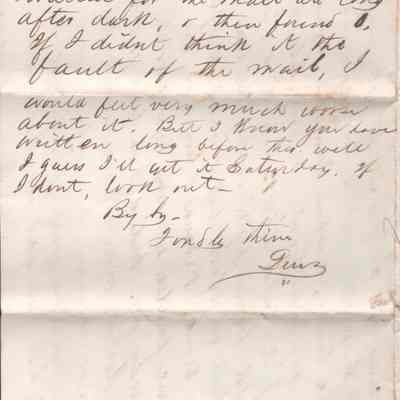 for the mail
after dark, & then found 0.
If I didnt think it the
fault of the mail, I
would feel very much worse
about it. But I know you have
written long before this well
I guess I'll get it Saturday. If
I dont, look out—
By by—
Fondly thine